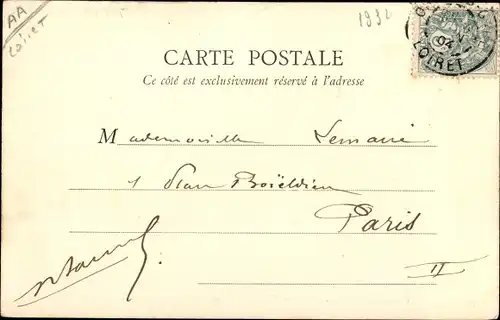 AA
Loiret
1932
04
LOIRET
CARTE POSTALE
Ce côté est exclusivement réservé à l'adresse
Mademoiselle Lemaire
1 Boïeldieu
Paris
II